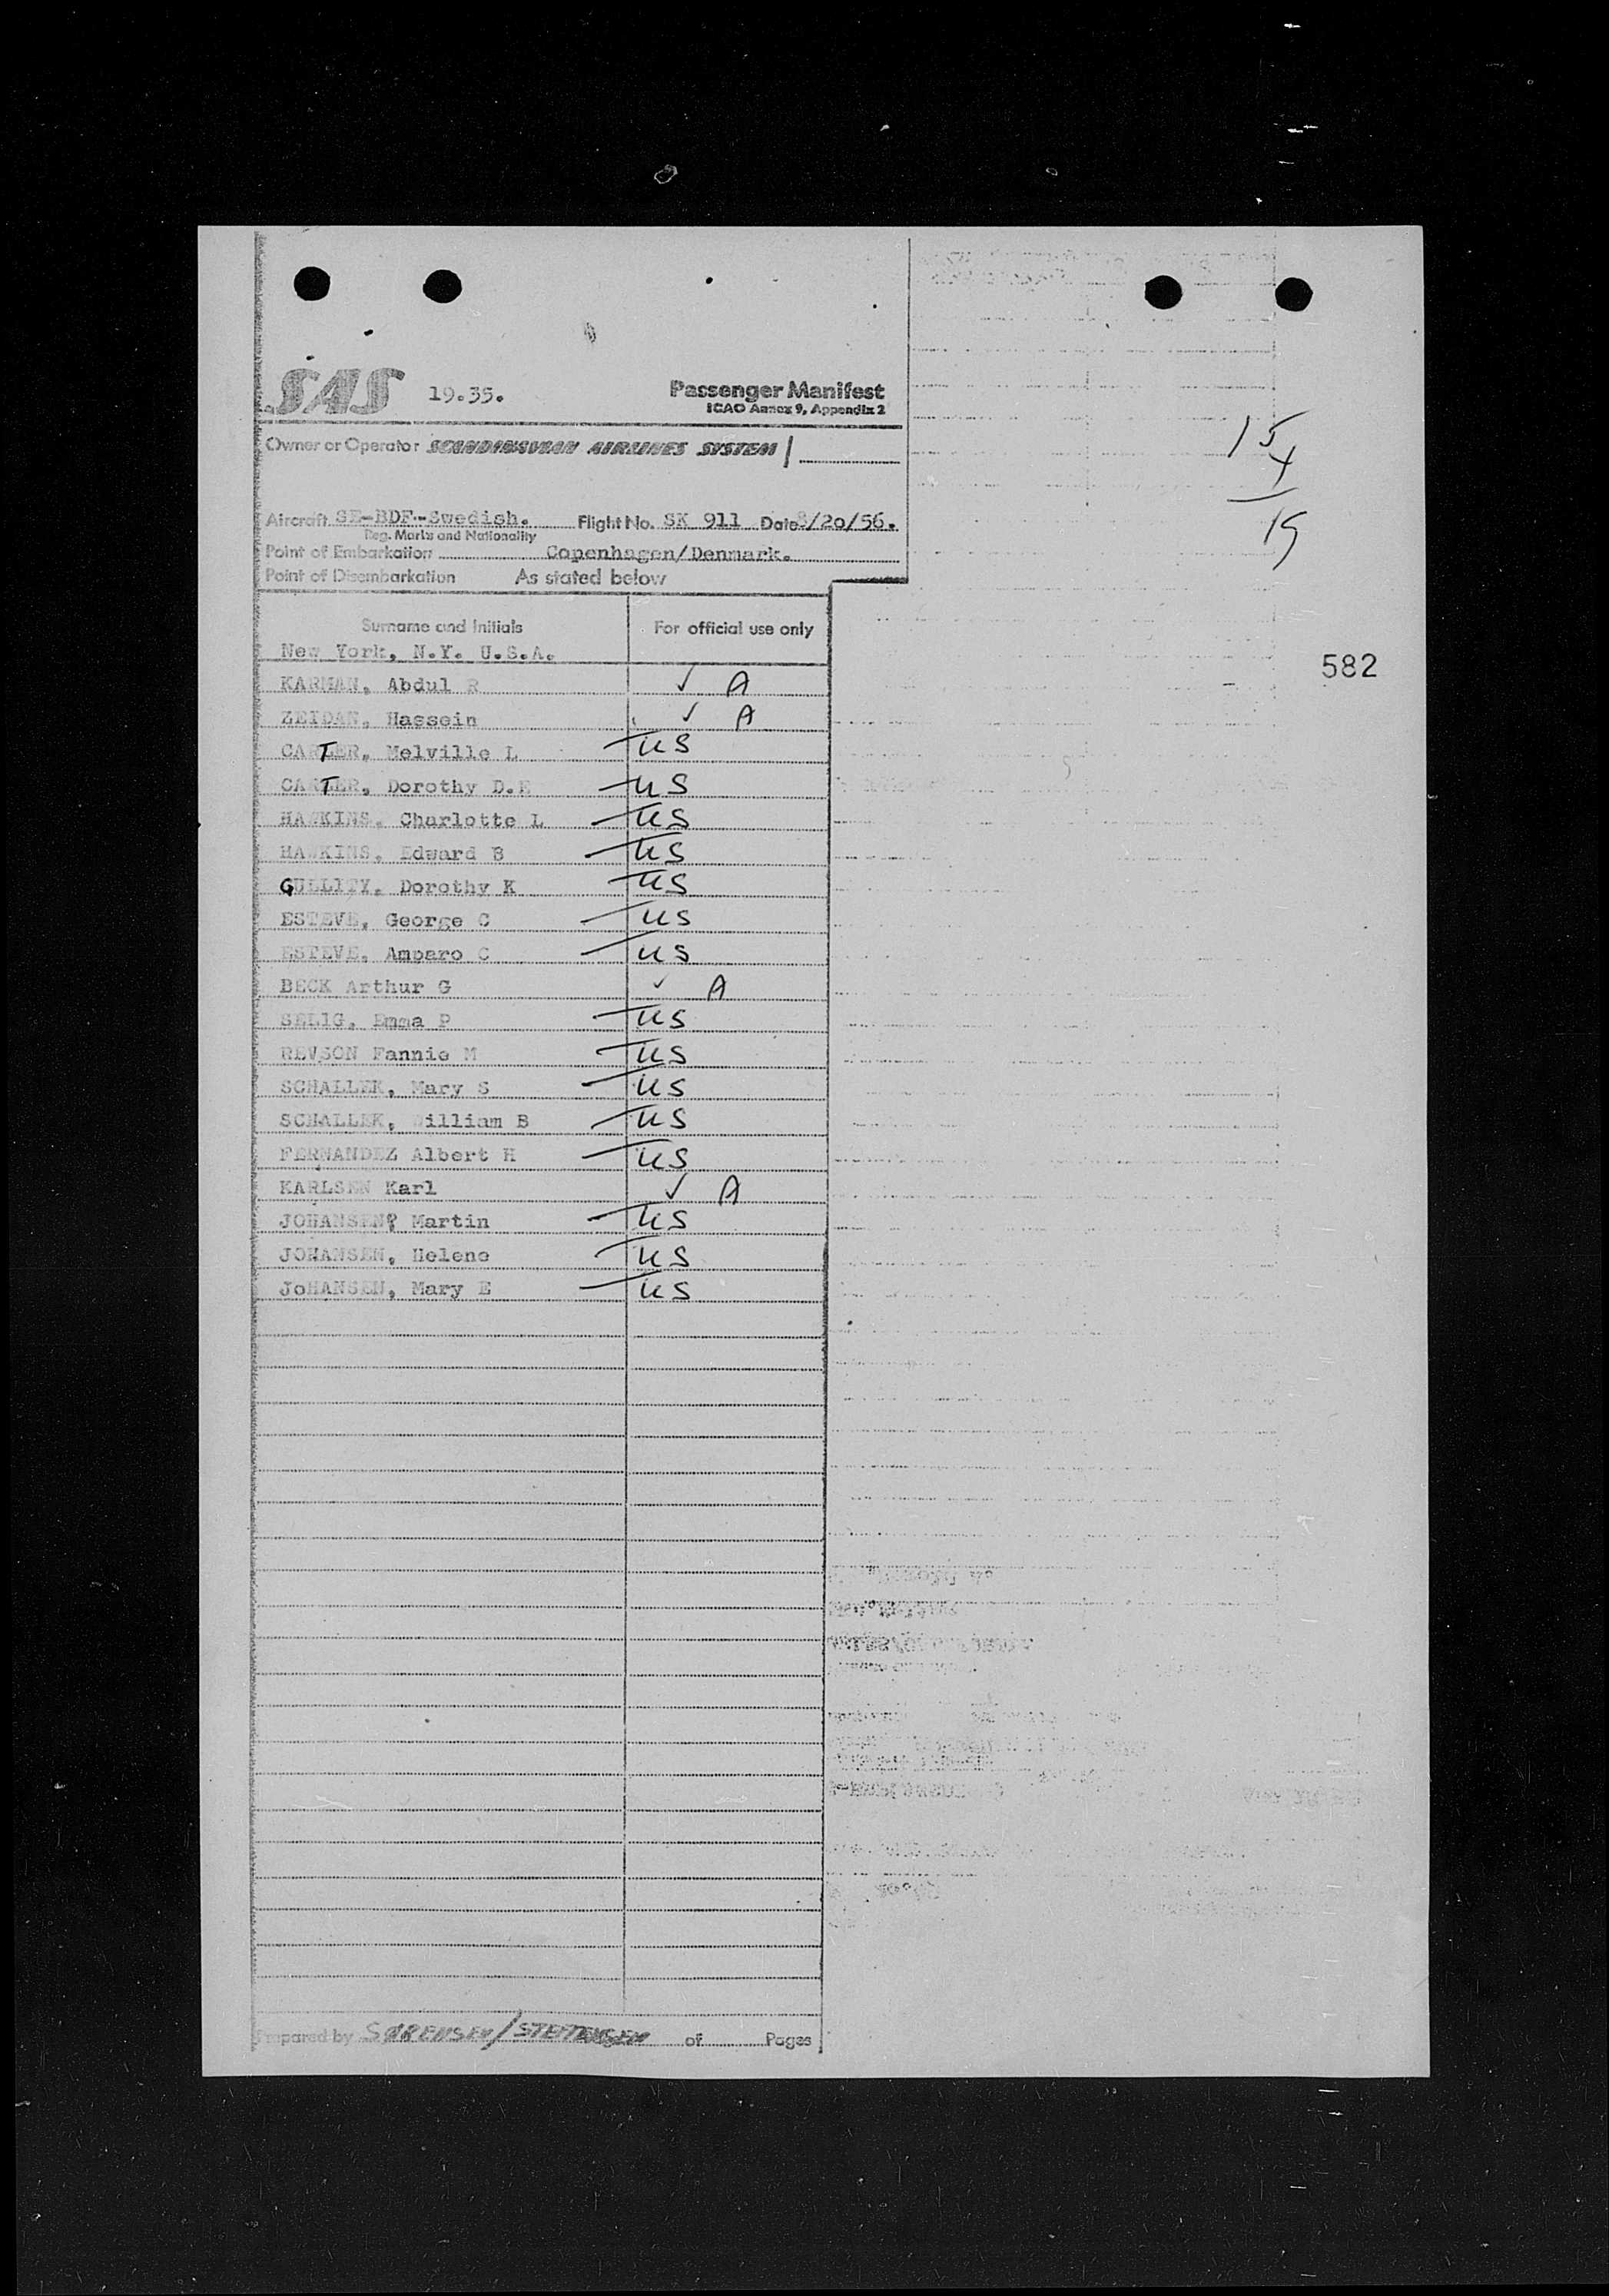 SAS 19.35. Passenger Manifest
ICAO Annex 9, Appendix 2
Owner or Operator SCANDINAVIAN AIRLINES SYSTEM
15
4
19
Aircraft SE-BDF--Swedish. Flight No. SK 911 Date 8/20/56.
Reg. Marks and Nationality
Point of Embarkation Copenhagen/Denmark.
Point of Disembarkation As stated below
Surname and Initials For official use only
New York, N.Y. U.S.A.
582
KARMAN, Abdul R ✓ A
ZEIDAN, Hassein ✓ A
CARTER, Melville L US
CARTER, Dorothy D.E US
HAWKINS, Charlotte L US
HAWKINS, Edward B US
Dorothy K US
ESTEVE, George C US
ESTEVE, Amparo C US
BECK Arthur G ✓ A
SELIG, Emma P US
REVSON Fannie M US
SCHALLEK, Mary S US
SCHALLEK, William B US
FERNANDEZ Albert H US
KARLSEN Karl ✓ A
JOHANSEN, Martin US
JOHANSEN, Helene US
JoHANSEN, Mary E US
Prepared by SØRENSEN/ of Pages